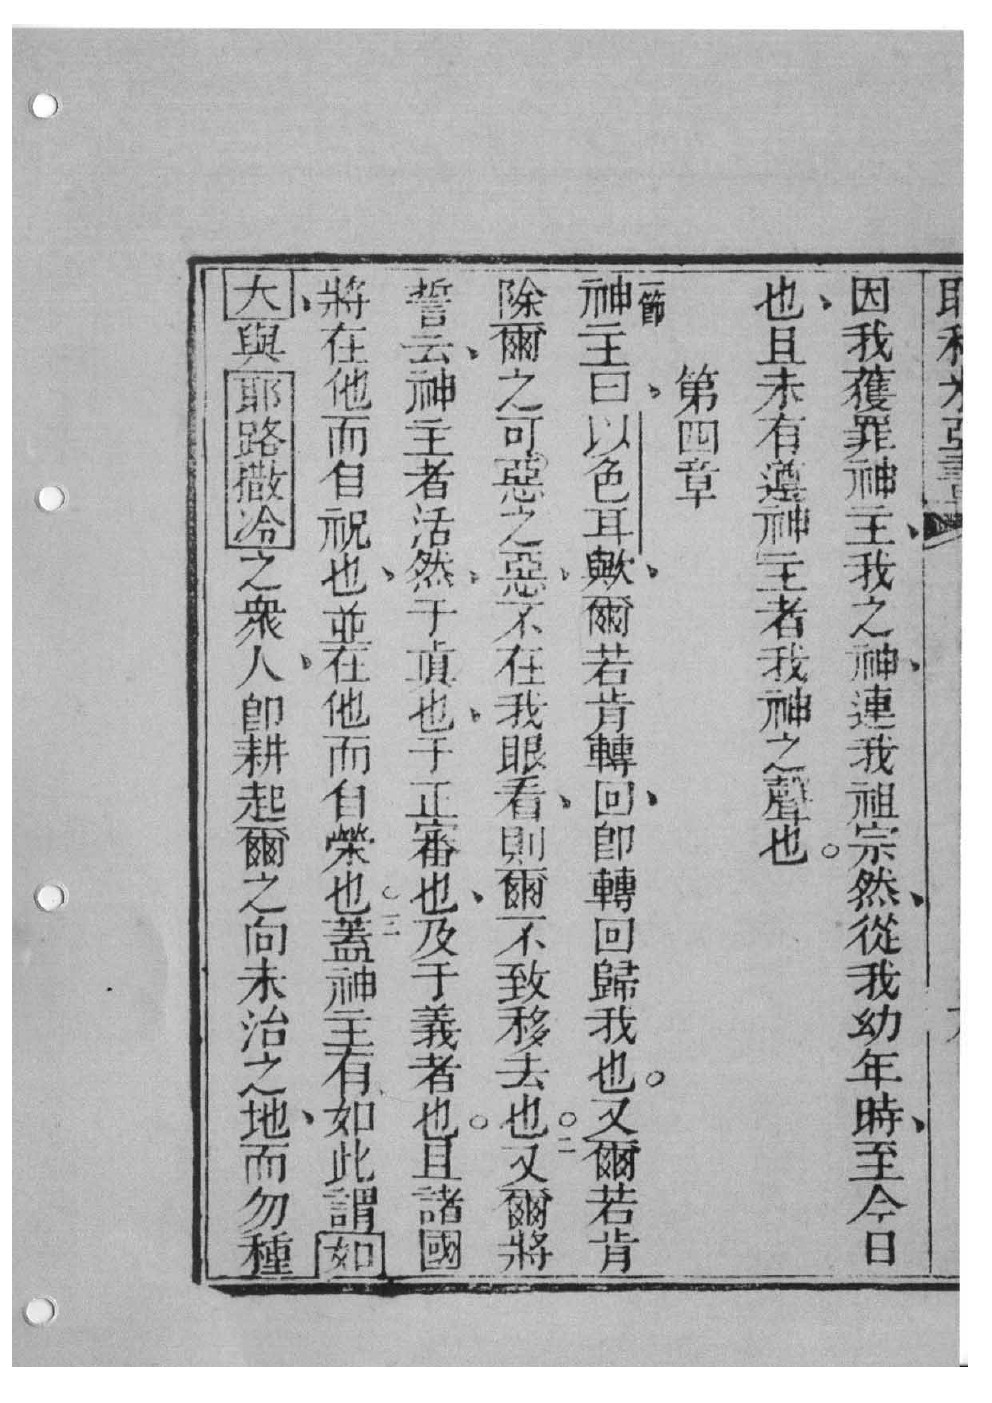 因我獲罪神主、我之神、連我祖宗、然從我幼年時、至今日
也、且未有遵神主者我神之聲也。
第四章
一節
神主曰、以色耳歟、爾若肯轉回、卽轉回歸我也。又爾若肯
除爾之可惡之惡、不在我眼看、則爾不致移去也。二又爾將
誓云、神主者活然、于眞也、于正審也、及于義者也。且諸國
將在他而自祝也、並在他而自榮也。三蓋神主有如此謂如
大、與耶路撒冷之衆人、卽耕起爾之向未治之地、而勿種